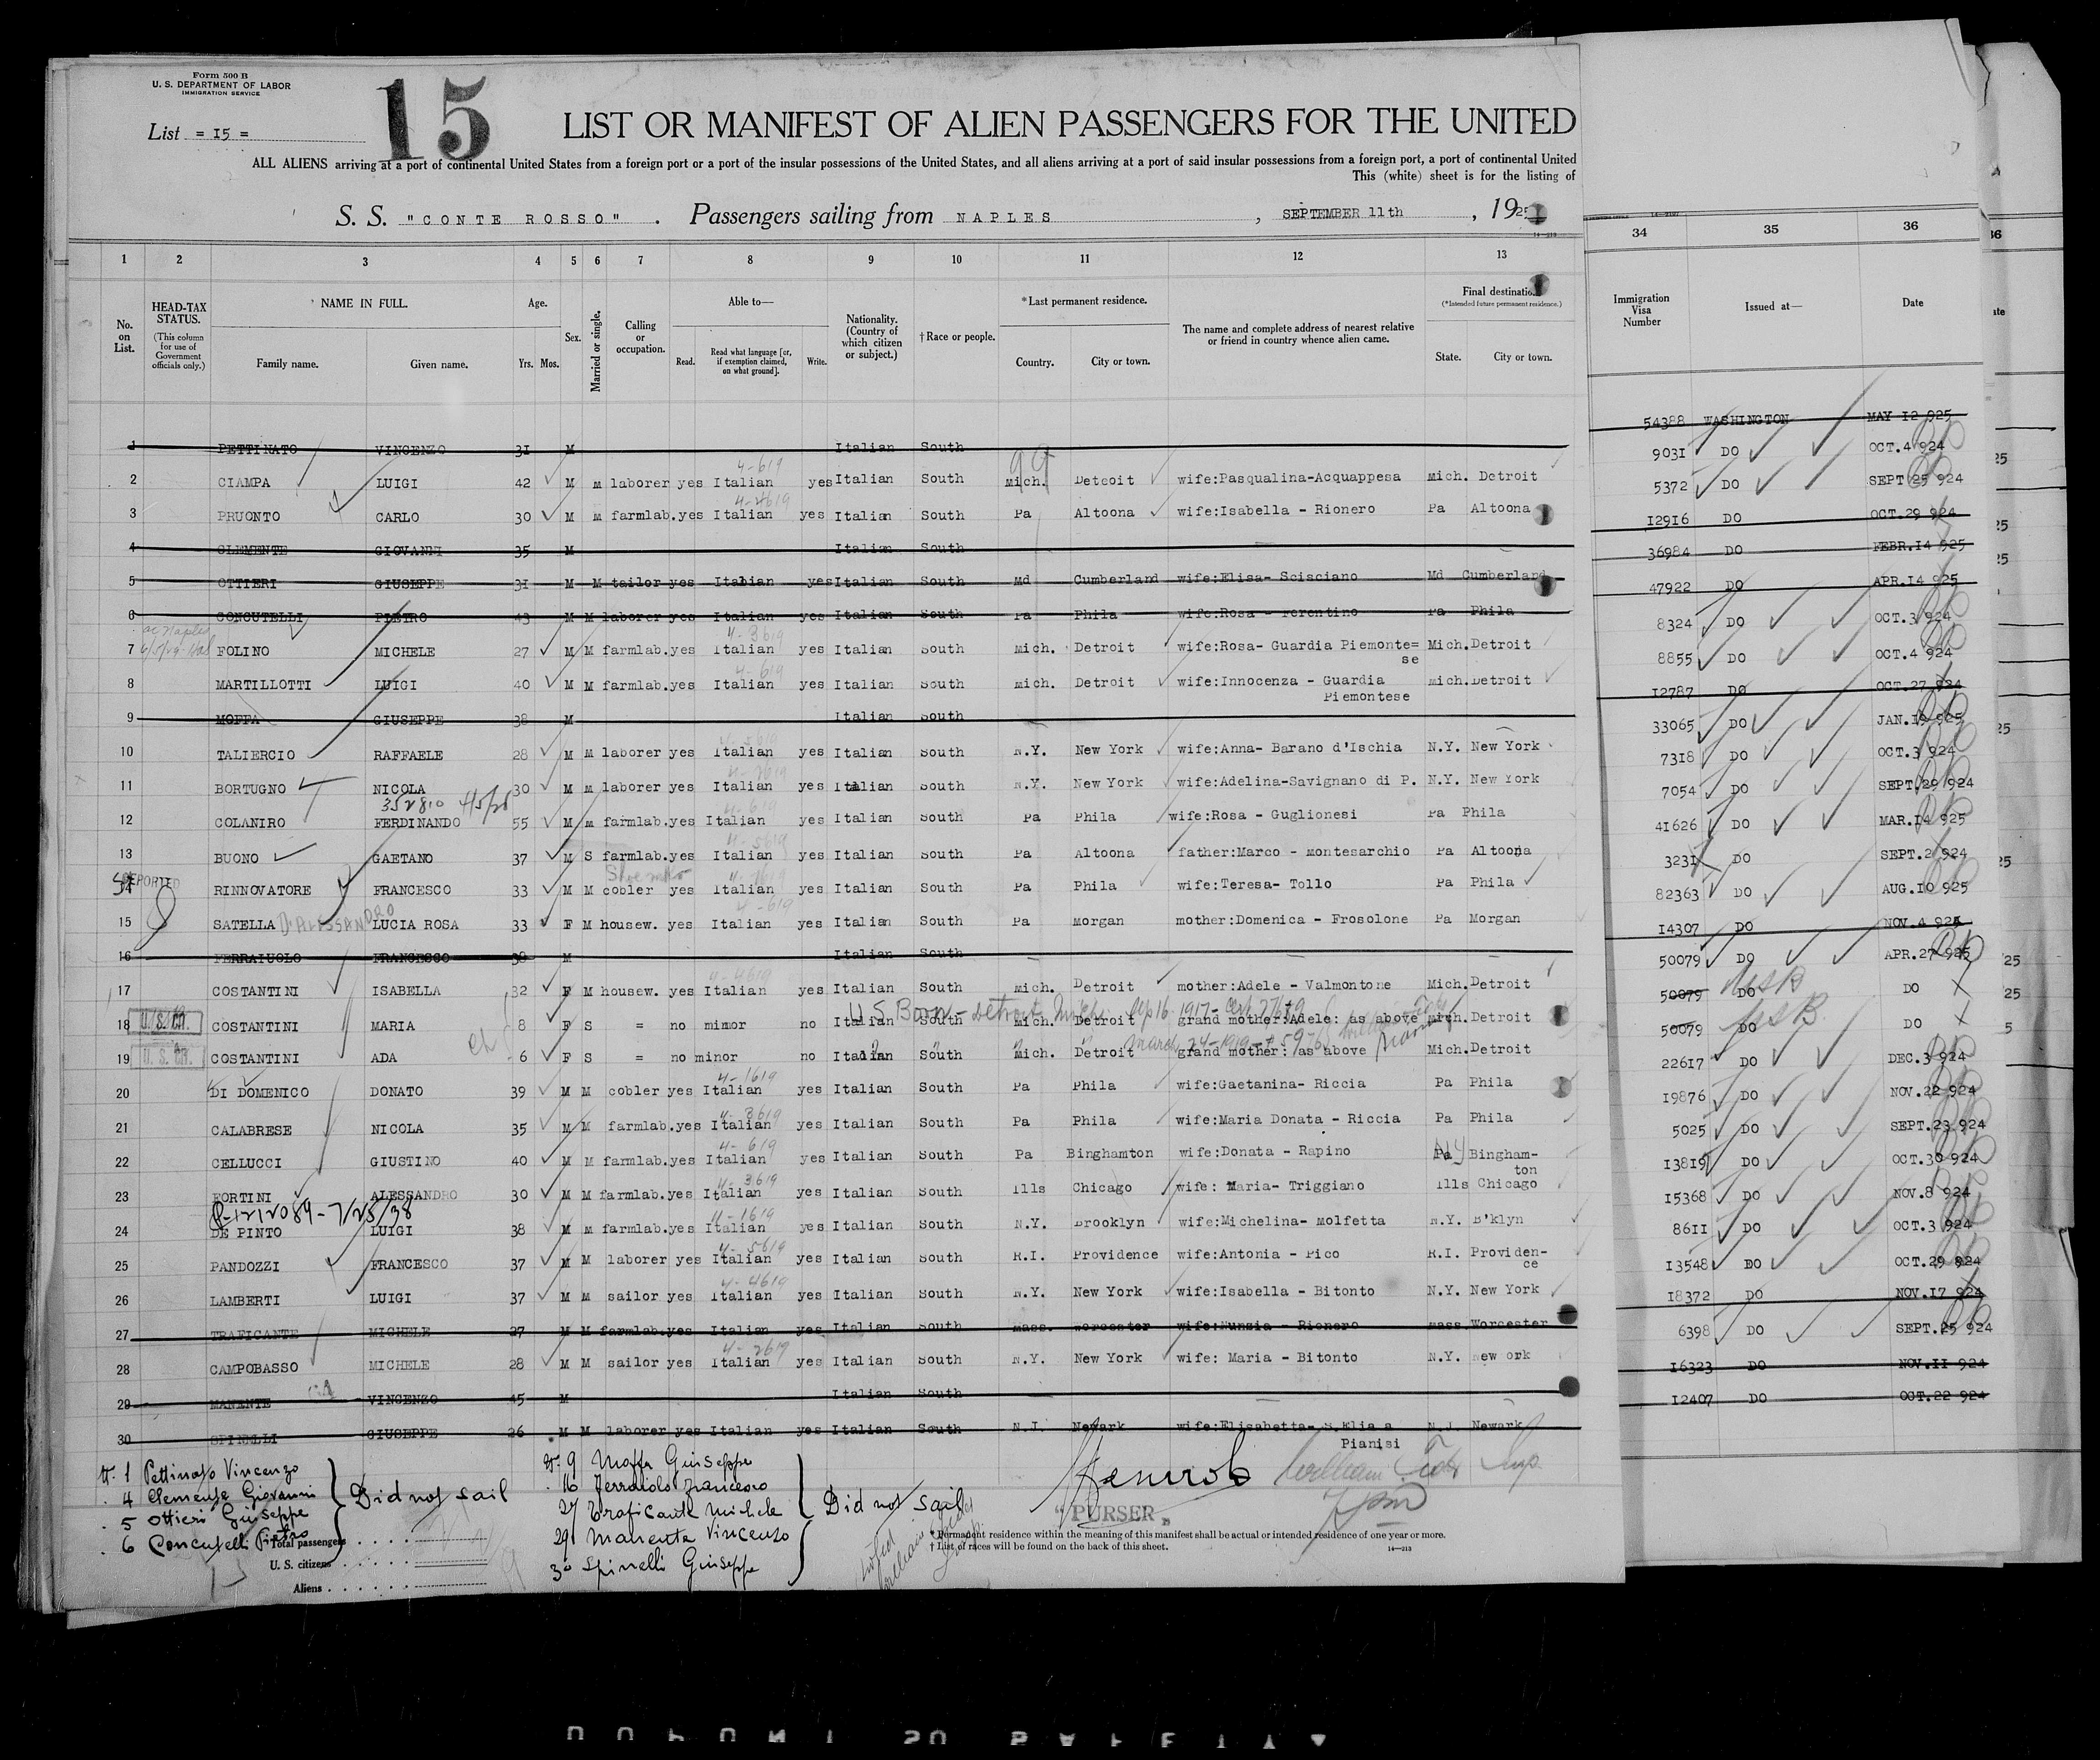 Form 500 B
U. S. DEPARTMENT OF LABOR
IMMIGRATION SERVICE
15
List = 15 =
LIST OR MANIFEST OF ALIEN PASSENGERS FOR THE UNITED
ALL ALIENS arriving at a port of continental United States from a foreign port or a port of the insular possessions of the United States, and all aliens arriving at a port of said insular possessions from a foreign port, a port of continental United
This (white) sheet is for the listing of
S. S. "CONTE ROSSO" . Passengers sailing from NAPLES , SEPTEMBER 11th , 1925
1 2 3 4 5 6 7 8 9 10 11 12 13 34 35 36
No. on List. HEAD-TAX STATUS. (This column for use of Government officials only.) NAME IN FULL. Family name. Given name. Age. Yrs. Mos. Sex. Married or single. Calling or occupation. Able to— Read. Read what language [or, if exemption claimed, on what ground]. Write. Nationality. (Country of which citizen or subject.) †Race or people. *Last permanent residence. Country. City or town. The name and complete address of nearest relative or friend in country whence alien came. Final destination. (*Intended future permanent residence.) State. City or town. Immigration Visa Number Issued at— Date
54388 WASHINGTON MAY 12 925
1 PETTINATO VINCENZO 31 M Italian South 9031 DO OCT.4 924
2 CIAMPA LUIGI 42 M m laborer yes Italian yes Italian South Mich. Detroit wife:Pasqualina-Acquappesa Mich. Detroit 5372 DO SEPT 25 924
3 PRUONTO CARLO 30 M m farmlab.yes Italian yes Italian South Pa Altoona wife:Isabella - Rionero Pa Altoona 12916 DO OCT.29 924
4 CLEMENTE GIOVANNI 35 M Italian South 36984 DO FEBR.14 925
5 OTTIERI GIUSEPPE 31 M M tailor yes Italian yes Italian South Md Cumberland wife:Elisa- Scisciano Md Cumberland 47922 DO APR.14 925
6 CONCUTELLI PIETRO 43 M M laborer yes Italian yes Italian South Pa Phila wife:Rosa - Ferentino Pa Phila 8324 DO OCT.3 924
7 FOLINO MICHELE 27 M M farmlab.yes Italian yes Italian South Mich. Detroit wife:Rosa- Guardia Piemonte=se Mich.Detroit 8855 DO OCT.4 924
8 MARTILLOTTI LUIGI 40 M M farmlab.yes Italian yes Italian South Mich. Detroit wife:Innocenza - Guardia Piemontese Mich.Detroit 12787 DO OCT.27 924
9 MOFFA GIUSEPPE 38 M Italian South 33065 DO JAN.19 925
10 TALIERCIO RAFFAELE 28 M m laborer yes Italian yes Italian South N.Y. New York wife:Anna- Barano d'Ischia N.Y. New York 7318 DO OCT.3 924
11 BORTUGNO NICOLA 30 M m laborer yes Italian yes Italian South N.Y. New York wife:Adelina-Savignano di P. N.Y. New York 7054 DO SEPT.29 924
12 COLANIRO FERDINANDO 55 M m farmlab.yes Italian yes Italian South Pa Phila wife:Rosa - Guglionesi Pa Phila 41626 DO MAR.14 925
13 BUONO GAETANO 37 M S farmlab.yes Italian yes Italian South Pa Altoona father:Marco - montesarchio Pa Altoona 3231 DO SEPT.2 924
DEPORTED
14 RINNOVATORE FRANCESCO 33 M M cobler yes Italian yes Italian South Pa Phila wife:Teresa- Tollo Pa Phila 82363 DO AUG.10 925
15 SATELLA DIALESSANDRO LUCIA ROSA 33 F M housew. yes Italian yes Italian South Pa Morgan mother:Domenica - Frosolone Pa Morgan 14307 DO NOV.4 924
16 FERRAIUOLO FRANCESCO 38 M Italian South 50079 DO APR.27 925
17 COSTANTINI ISABELLA 32 F M housew. yes Italian yes Italian South Mich. Detroit mother:Adele - Valmontone Mich.Detroit 50079 DO DO
U S Born - Detroit Mich. Sep 16 1917-
18 COSTANTINI MARIA 8 F S = no minor no Italian South Mich. Detroit grand mother:Adele: as above Mich.Detroit 50079 DO DO
March 24-1919
19 COSTANTINI ADA 6 F S = no minor no Italian South Mich. Detroit grand mother: as above Mich.Detroit 22617 DO DEC.3 924
20 DI DOMENICO DONATO 39 M M cobler yes Italian yes Italian South Pa Phila wife:Gaetanina- Riccia Pa Phila 19876 DO NOV.22 924
21 CALABRESE NICOLA 35 M M farmlab.yes Italian yes Italian South Pa Phila wife:Maria Donata - Riccia Pa Phila 5025 DO SEPT.23 924
22 CELLUCCI GIUSTINO 40 M M farmlab.yes Italian yes Italian South Pa Binghamton wife:Donata - Rapino Pa NY Bingham-ton 13819 DO OCT.30 924
23 FORTINI ALESSANDRO 30 M M farmlab.yes Italian yes Italian South Ills Chicago wife: Maria- Triggiano Ills Chicago 15368 DO NOV.8 924
24 DE PINTO LUIGI 38 M m farmlab.yes Italian yes Italian South N.Y. Brooklyn wife:Michelina- Molfetta N.Y. B'klyn 8611 DO OCT.3 924
25 PANDOZZI FRANCESCO 37 M M laborer yes Italian yes Italian South R.I. Providence wife:Antonia - Pico R.I. Providen-ce 13548 DO OCT.29 924
26 LAMBERTI LUIGI 37 M M sailor yes Italian yes Italian South N.Y. New York wife:Isabella - Bitonto N.Y. New York 18372 DO NOV.17 924
27 TRAFICANTE MICHELE 27 M M farmlab.yes Italian yes Italian South Mass. Worcester wife:Nunzia - Rionero Mass.Worcester 6398 DO SEPT.25 924
28 CAMPOBASSO MICHELE 28 M M sailor yes Italian yes Italian South N.Y. New York wife: Maria - Bitonto N.Y. New ork 16323 DO NOV.11 924
29 MANENTE VINCENZO 45 M Italian South 12407 DO OCT.22 924
30 SPINELLI GIUSEPPE 26 M M laborer yes Italian yes Italian South N.J. Newark wife:Elisabetta- S.Elia a Pianisi N.J. Newark
1 Pettinato Vincenzo
4 Clemente Giovanni
5 Ottieri Giuseppe
6 Concutelli Pietro
Did not sail
9 Moffa Giuseppe
16 Ferraiolo Francesco
27 Traficante Michele
29 Manente Vincenzo
30 Spinelli Giuseppe
Did not sail
"PURSER"
Total passengers . . . .
U. S. citizens . . . . .
Aliens . . . . . .
* Permanent residence within the meaning of this manifest shall be actual or intended residence of one year or more.
† List of races will be found on the back of this sheet.
14—213